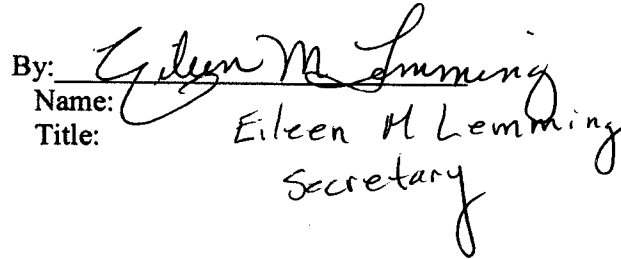 By: Eileen M Lemming
Name: Eileen M Lemming
Title: Secretary